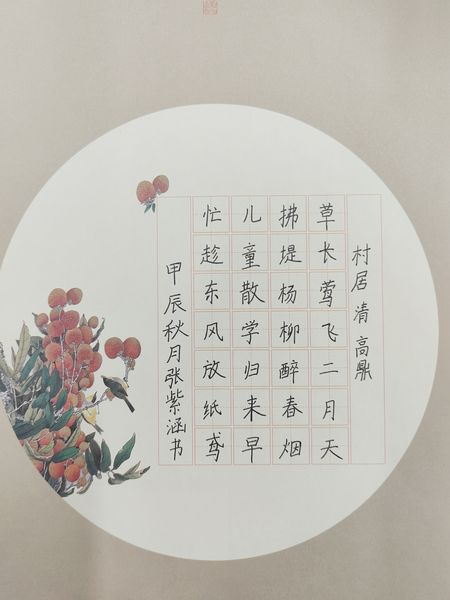 村居 清 高鼎
草长莺飞二月天
拂堤杨柳醉春烟
儿童散学归来早
忙趁东风放纸鸢
甲辰秋月张紫涵书